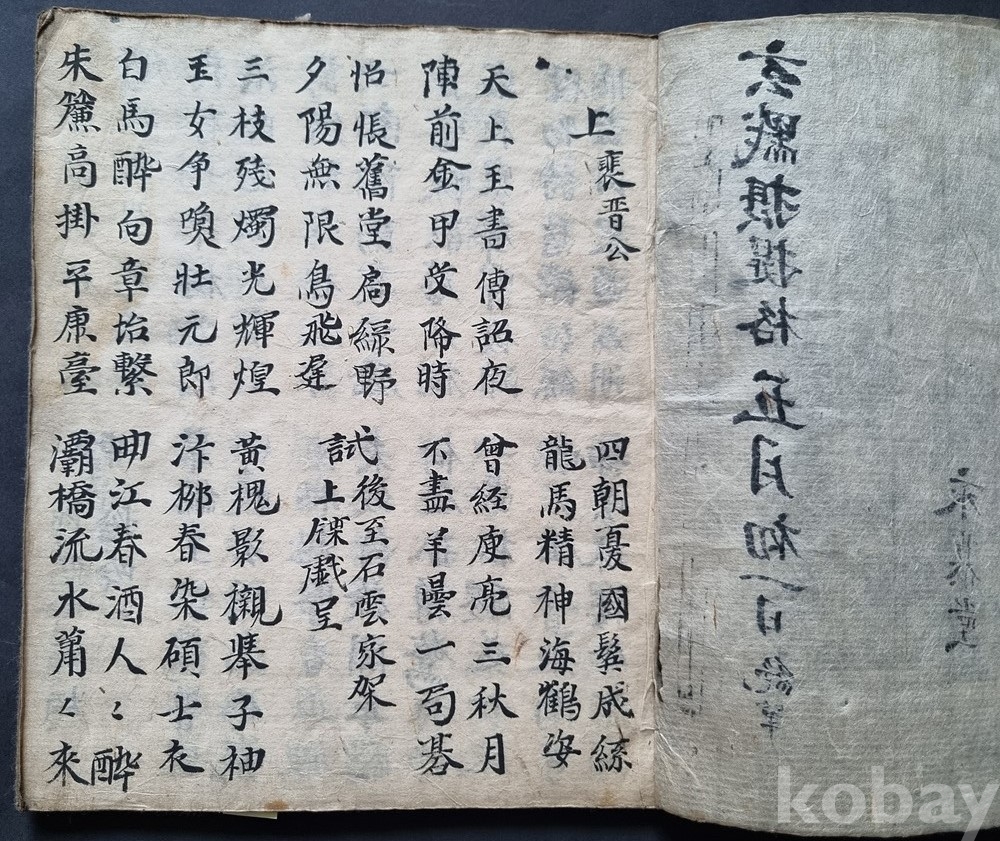 玄黓攝提格五月初一日
上 裵晋公
四朝憂國鬂成絲
龍馬精神海鶴姿
天上玉書傳詔夜
陣前金甲受降時
曾經庾亮三秋月
不盡羊曇一局碁
怊悵舊堂扃綠野
夕陽無限鳥飛遲
試後至石雲家架
上屧戲呈
三枝殘燭光輝煌
玉女爭喚壯元郎
黃槐影襯擧子袖
汴柳春染碩士衣
白馬醉向章坮繫
朱簾高掛平康臺
曲江春酒人〻醉
灞橋流水蕭〻來
kobay